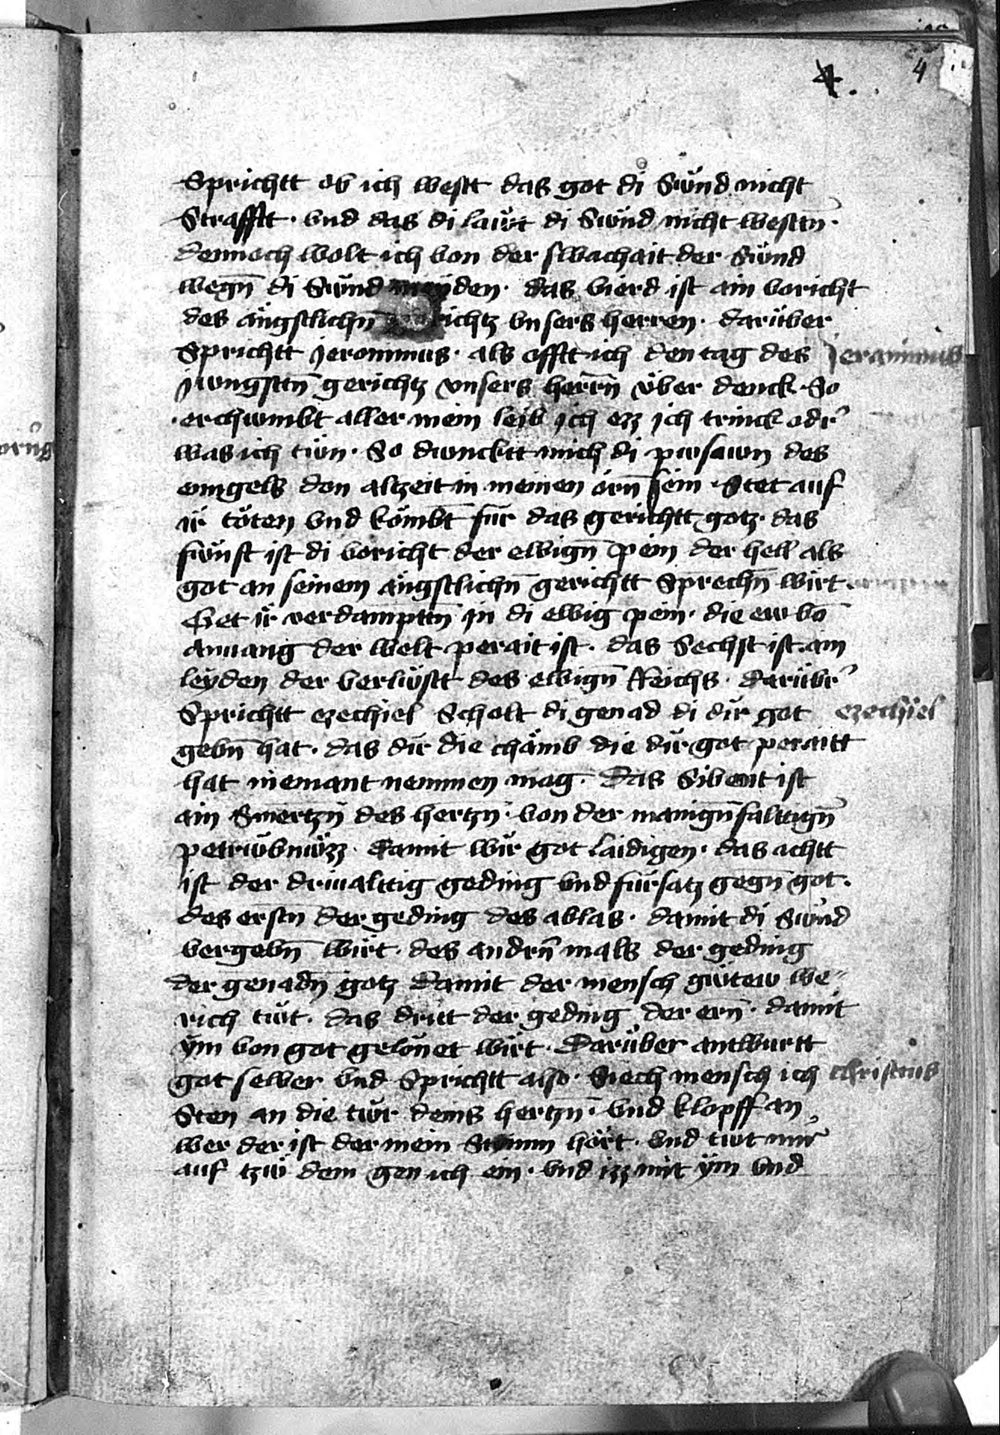 4
Sprichtt ob ich westt das got di Sünd nicht
Strafftt · vnd das di lawt di Sünd nicht westn̄ ·
dennoch wolt ich von der swachait der Sünd
wegn̄ di Sünd meyden · das vierd ist ain voricht
des ängstlichn̄ gerichtz vnsers herren · darüber
Sprichtt jeronimus · als offtt ich den tag des
Jeronimus
jwngstn̄ gerichtz vnsers herrn̄ über denck · So
erchwmbt aller mein leib ich ezz ich trinck odr̄
was ich twn · So dwncktt mich di pwsawn des
enngels don altzeit in meinen örn̄ sein · Stet auf
ir töten vnd kömbt für das gerichtt gotz · das
fünft ist di voricht der ewign̄ pein der hell als
got an seinem ängstlichn̄ gerichtt Sprechn̄ wirt ·
Get ir verdamptn̄ in di ewig pein · die ew vō
anuang der welt perait ist · das Sechst ist ain
leyden der verlüstt des ewign̄ Reichs · darübr̄
Sprichtt ezechiel Scholt di genad di dir got
ezechiel
gebn̄ hat · das dir die chämb die dir got peraitt
hat niemant nemmen mag · Das Sibent ist
ain Smertzn̄ des hertzn̄ · von der manignfaltign̄
petrübnüzz · Damit wir got laidigen · das achtt
ist der driualttig geding vnd fürsatz gegn̄ got ·
des erstn̄ der geding des ablas · damit di Sünd
vergebn̄ wirt · des andrn̄ mals der geding
der genadn̄ gotz Damit der mensch gütew we-
rich twt · das dritt der geding der ern̄ · damit
ÿm von got gelönet wirt · Darüber antwurtt
got selber vnd Sprichtt also · Siech mensch ich
christus
Sten an die tür deins hertzn̄ · vnd klopff an
wer der ist der mein Stimm hört · vnd twt mir
auf tzw dem gen ich ein · vnd izz mit ÿm vnd